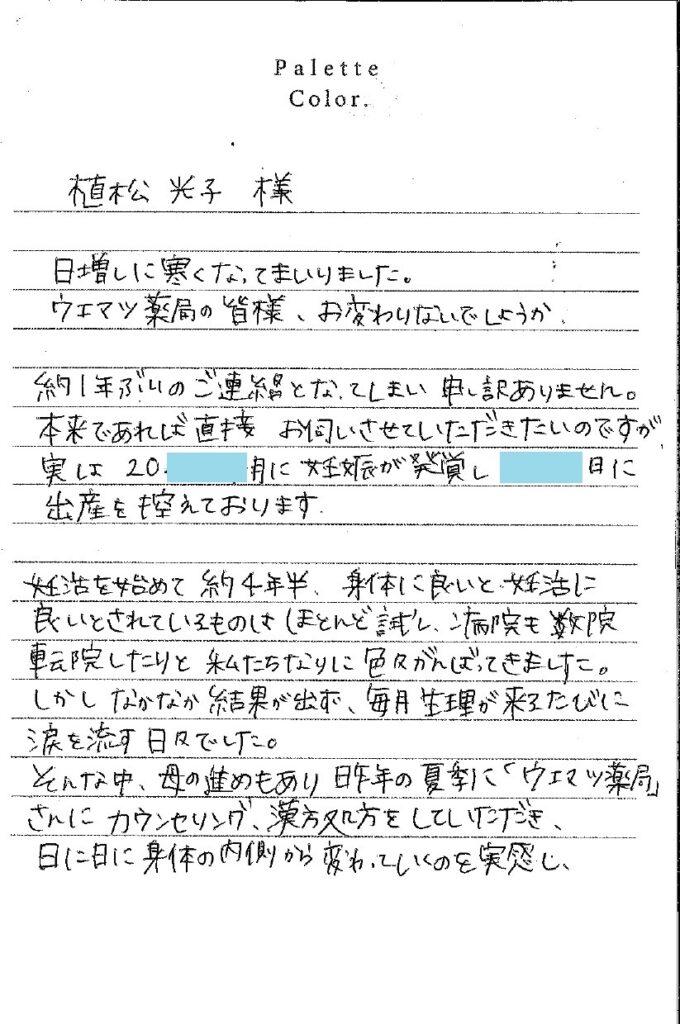 Palette
Color.
植松 光子 様
日増しに寒くなってまいりました。
ウエマツ薬局の皆様、お変わりないでしょうか.
約1年ぶりのご連絡となってしまい 申し訳ありません。
本来であれば直接 お伺いさせていただきたいのですが、
実は 20 月に 妊娠が発覚し 日に
出産を控えております.
妊活を始めて 約4年半、身体に良いと 妊活に
良いとされているものは ほとんど試し、病院も 数院
転院したりと 私たちなりに 色々がんばってきました。
しかし なかなか 結果が出ず、毎月 生理が 来るたびに
涙を流す 日々でした。
そんな中、母の進めもあり 昨年の 夏季に「ウエマツ薬局」
さんに カウンセリング、漢方処方を していただき、
日に日に 身体の内側から 変わっていくのを 実感し、